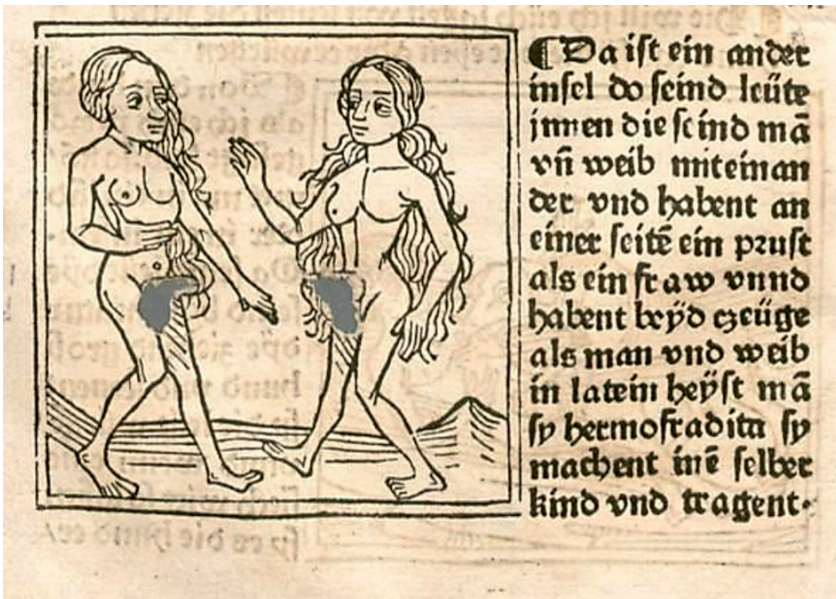 ¶ Da ist ein ander
insel do seind leüte
innen die seind mā
vñ weib miteinan
der vnd habent an
einer seitē ein prust
als ein fraw vnnd
habent beÿd czeüge
als man vnd weib
in latein heÿst mā
sy hermofradita sy
machent inē selber
kind vnd tragent·